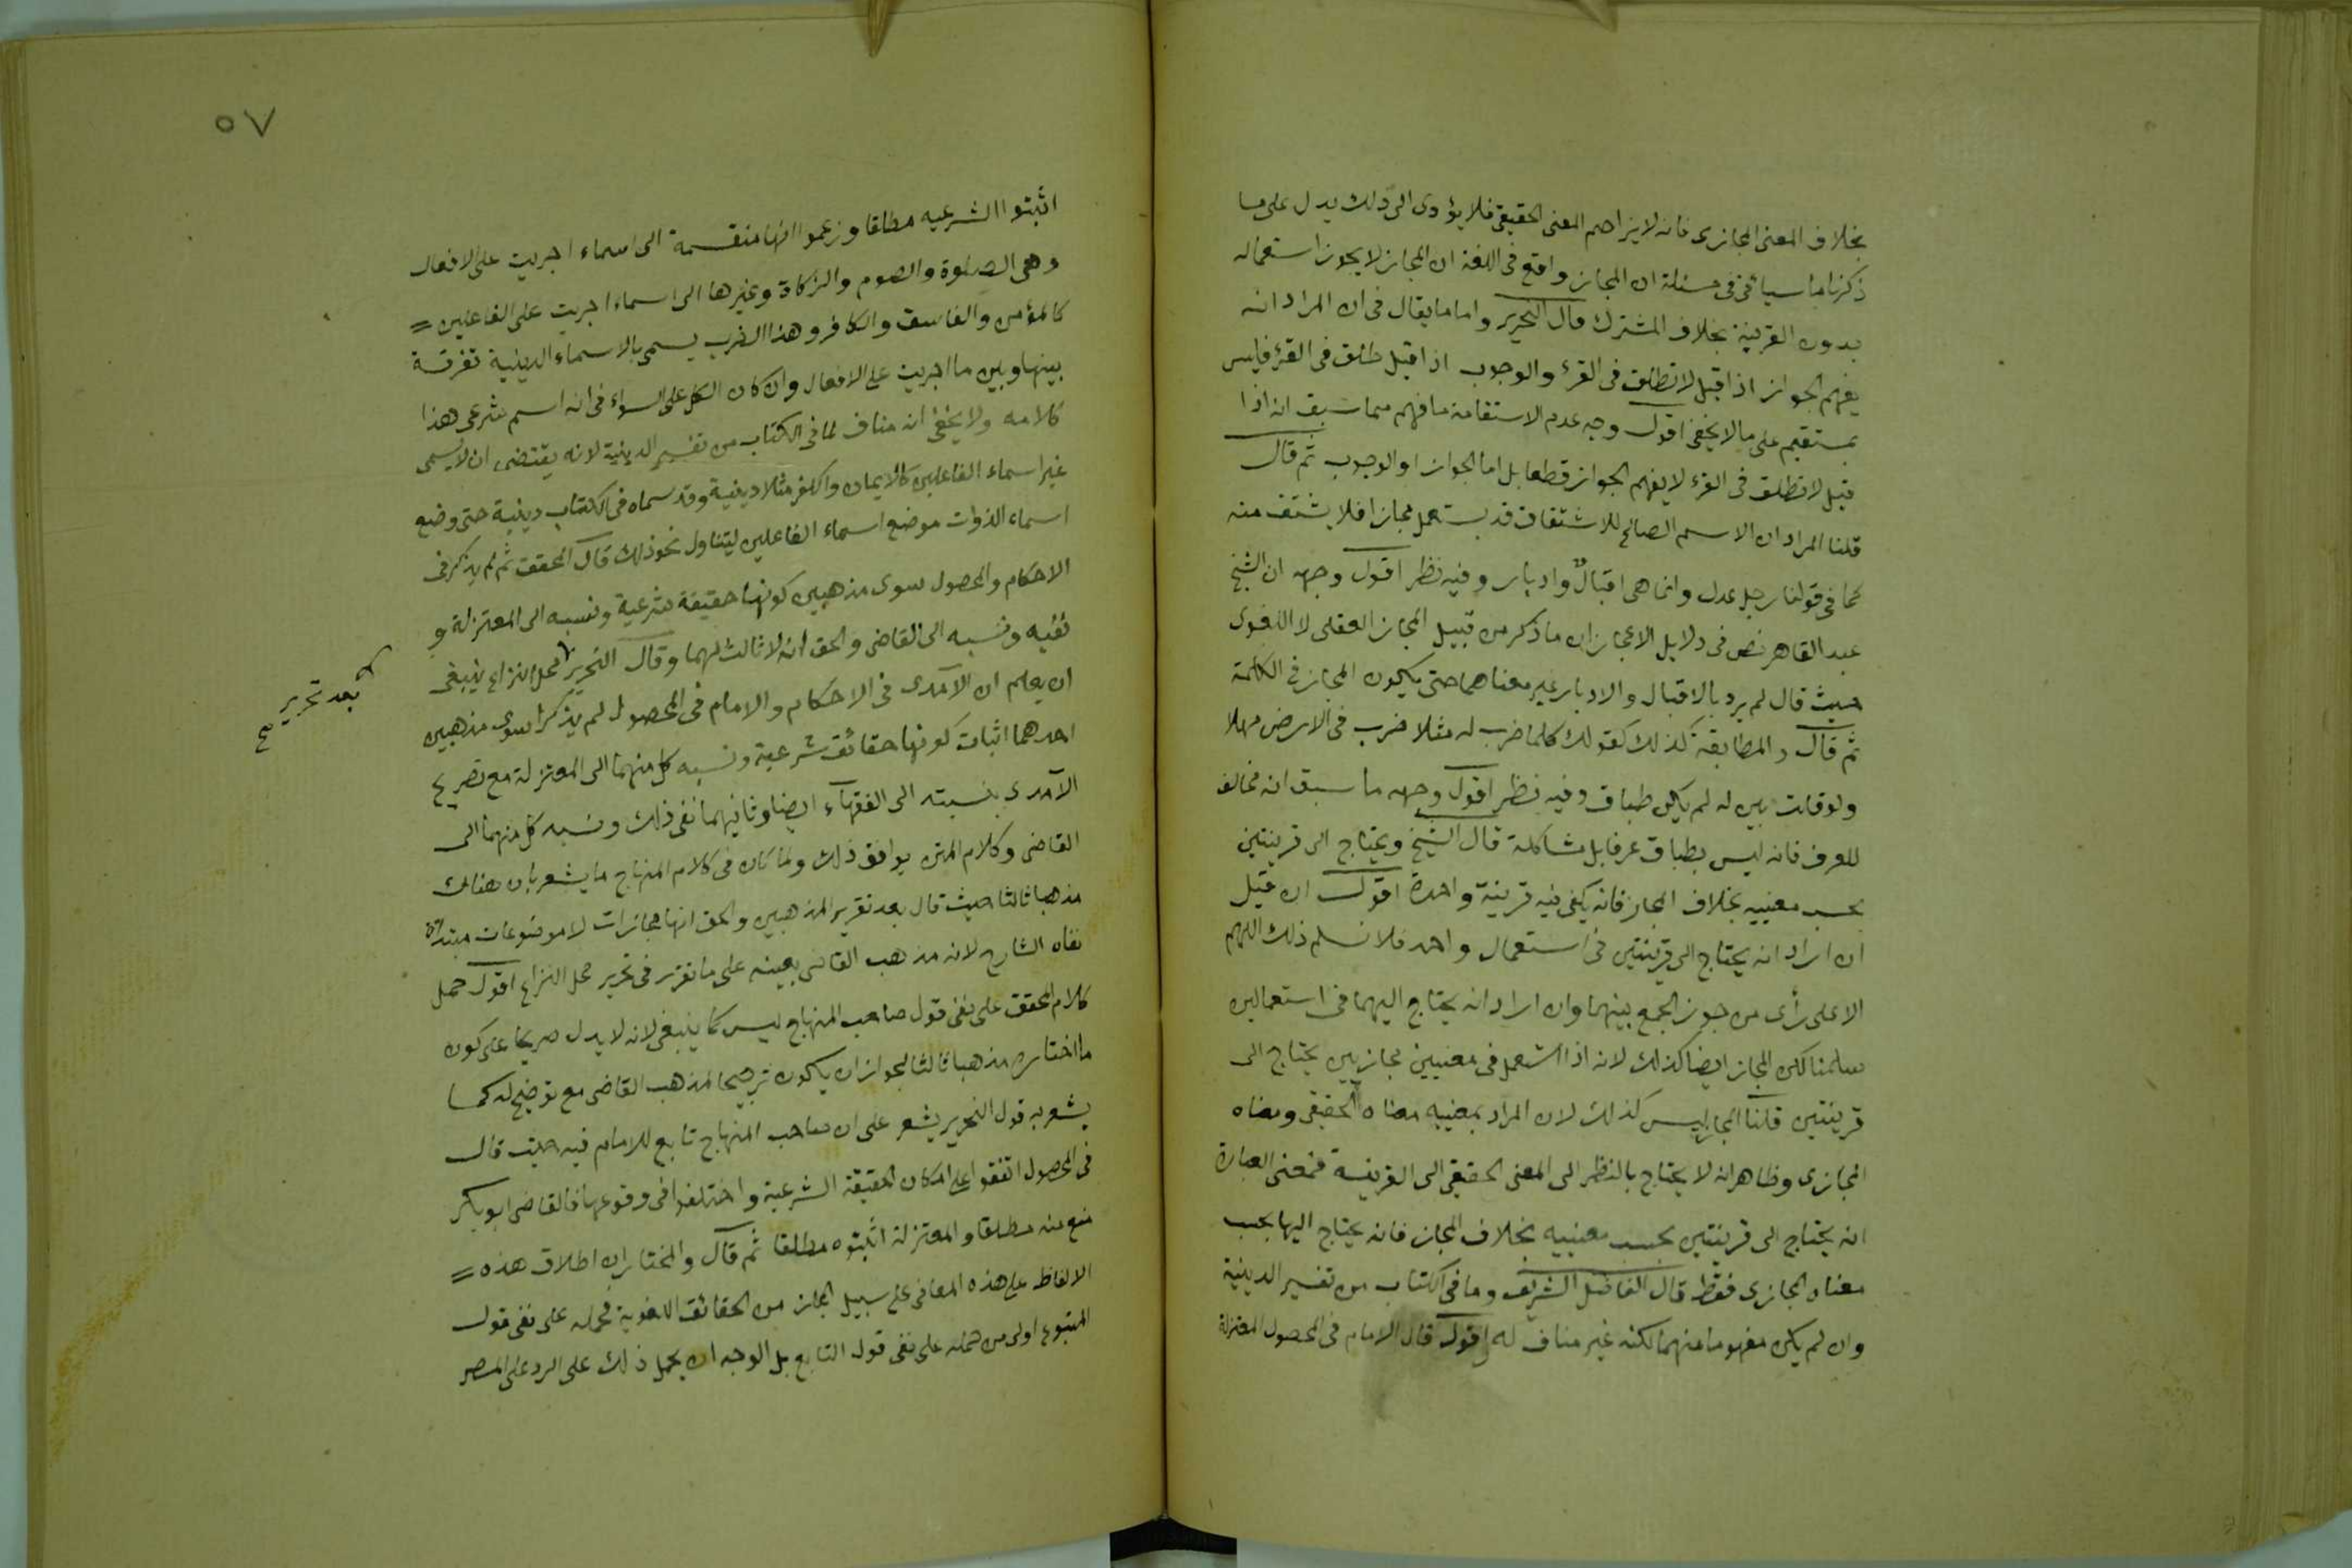 بخلاف المعنى المجازى فانه لا يزاحم المعنى الحقيقى فلا يؤدى الى ذلك يدل على ما
ذكرنا ما سيأتى فى مسئلة ان المجاز واقع فى اللغة ان المجاز لا يجوز استعماله
بدون القرينة بخلاف المشترك قال النحرير واما ما يقال فى ان المراد انه
يفهم الجواز اذا قيل لا تطلق فى القرء والوجوب اذا قيل طلق فى القرء فليس
بمستقيم على ما لا يخفى اقول وجه عدم الاستقامة ما فهم مما سبق انه اذا
قيل لا تطلق فى القرء لا يفهم الجواز قطعا بل اما الجواز او الوجوب ثم قال
قلنا المراد ان الاسم الصالح للاشتقاق قد يستعمل مجازا فلا يشتق منه
كما فى قولنا رجل عدل وانما هى اقبال وادبار وفيه نظر اقول وجهه ان الشيخ
عبد القاهر نص فى دلايل الاعجاز ان ما ذكر من قبيل المجاز العقلى لا اللغوى
حيث قال لم يرد بالاقبال والادبار غير معناهما حتى يكون المجاز فى الكلمة
ثم قال والمطابقة كذلك كقولك كلما ضرب له مثلا ضرب فى الارض مهلا
ولو قلت بين له لم يكن طباق وفيه نظر اقول وجهه ما سبق انه مخالف
للعرف فانه ليس بطباق عرفا بل مشاكلة قال الشيخ ويحتاج الى قرينتين
بحسب معنييه بخلاف المجاز فانه يكفى فيه قرينة واحدة اقول ان قيل
ان اراد انه يحتاج الى قرينتين فى استعمال واحد فلا نسلم ذلك اللهم
الا على رأى من جوز الجمع بينهما وان اراد انه يحتاج اليهما فى استعمالين
سلمنا لكن المجاز ايضا كذلك لانه اذا استعمل فى معنيين مجازيين يحتاج الى
قرينتين قلنا المجاز ليس كذلك لان المراد بمعنييه معناه الحقيقى ومعناه
المجازى وظاهر انه لا يحتاج بالنظر الى المعنى الحقيقى الى القرينة فمعنى العبارة
انه يحتاج الى قرينتين بحسب معنييه بخلاف المجاز فانه يحتاج اليها بحسب
معناه المجازى فقط قال الفاضل الشريف وما فى الكتاب من تفسير الدينية
وان لم يكن مفهوما منهما لكنه غير مناف له اقول قال الامام فى المحصول المعتزلة
٥٧
اثبتوا الشرعيه مطلقا وزعموا انها منقسمة الى اسماء اجريت على الافعال
وهى الصلوة والصوم والزكاة وغيرها الى اسماء اجريت على الفاعلين =
كالمؤمن والفاسق والكافر وهذا الضرب يسمى بالاسماء الدينية تفرقة
بينها وبين ما اجريت على الافعال وان كان الكل على السواء فى انه اسم شرعى هذا
كلامه ولا يخفى انه مناف لما فى الكتاب من تفسير الدينية لانه يقتضى ان لا يسمى
غير اسماء الفاعلين كالايمان والكفر مثلا دينية وقد سماه فى الكتاب دينية حتى وضع
اسماء الذوات موضع اسماء الفاعلين ليتناول نحو ذلك قال المحقق ثم لم يذكر فى
الاحكام والمحصول سوى مذهبين كونها حقيقة شرعية ونسبه الى المعتزلة و
نفيه ونسبه الى القاضى والحق انه لا ثالث لهما وقال النحرير محل النزاع ينبغى
بعد تحرير صح
ان يعلم ان الآمدى فى الاحكام والامام فى المحصول لم يذكرا سوى مذهبين
احدهما اثبات كونها حقائق شرعية ونسبه كل منهما الى المعتزلة مع تصريح
الآمدى بنسبته الى الفقهآء ايضا وثانيهما نفى ذلك ونسبه كل منهما الى
القاضى وكلام المتن يوافق ذلك ولما كان فى كلام المنهاج ما يشعر بان هنالك
مذهبا ثالثا حيث قال بعد تقرير المذهبين والحق انها مجازات لا موضوعات مبتدأة
نفاه الشارح لانه مذهب القاضى بعينه على ما تقرر فى تحرير محل النزاع اقول حمل
كلام المحقق على نفى قول صاحب المنهاج ليس كما ينبغى لانه لا يدل صريحا على كون
ما اختاره مذهبا ثالثا لجواز ان يكون ترجيحا لمذهب القاضى مع توضيح له كما
يشعر به قول النحرير يشعر على ان صاحب المنهاج تابع للامام فيه حيث قال
فى المحصول اتفقوا على امكان الحقيقة الشرعية واختلفوا فى وقوعها فالقاضى ابو بكر
منع منه مطلقا والمعتزلة اثبتوه مطلقا ثم قال والمختار ان اطلاق هذه =
الالفاظ على هذه المعانى على سبيل المجاز من الحقائق اللغوية فحمله على نفى قول
المتبوع اولى من حمله على نفى قول التابع بل الوجه ان يحمل ذلك على الرد على المصر